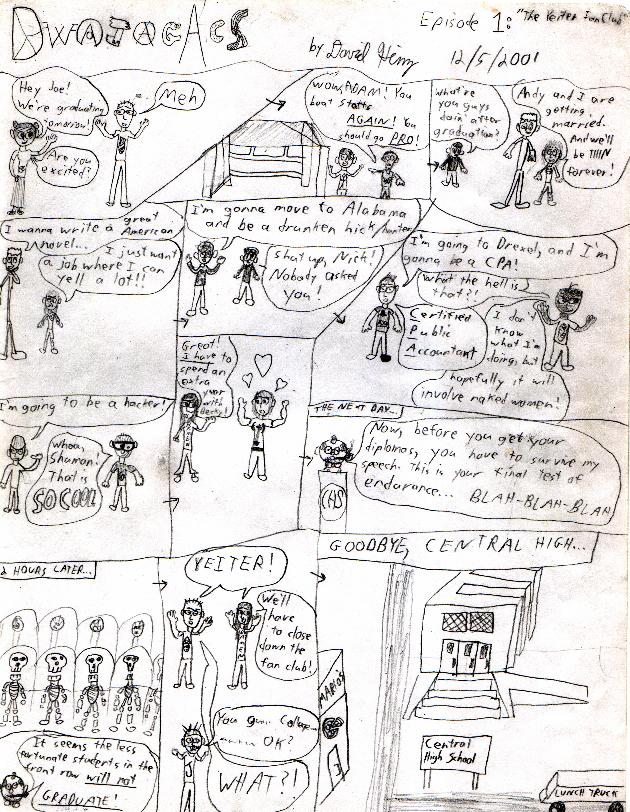 DWATAGACS
Episode 1: "The Yeiter Fan Club"
by David Henry
12/5/2001
Hey Joe!
We're graduating
tomorrow!
Are you
excited?
Meh
Wow, ADAM! You
beat Starts
AGAIN! You
should go PRO!
What're
you guys
doin' after
graduation?
Andy and I are
getting
married.
And we'll
be THIN
forever!
I wanna write a great
American
novel...
I just want
a job where I can
yell a lot!!
I'm gonna move to Alabama
and be a drunken hick/hunter
shut up, Nick!
Nobody asked
you!
I'm going to Drexel, and I'm
gonna be a CPA!
What the hell is
that?!
Certified
Public
Accountant
I don't
know
what I'm
doing, but
hopefully it will
involve naked women!
I'm going to be a hacker!
Whoa,
Shamon.
That is
SO COOL!
Great!
I have to
spend an
extra
year with
Becky!
THE NEXT DAY...
Now, before you get your
diplomas, you have to survive my
speech. This is your final test of
endurance... BLAH-BLAH-BLAH
CHS
2 HOURS LATER...
It seems the less
fortunate students in the
front row will not
GRADUATE!
YEITER!
We'll
have
to close
down the
fan club!
You
OK?
WHAT?!
MARIO'S
GOODBYE, CENTRAL HIGH...
Central
High School
LUNCH TRUCK